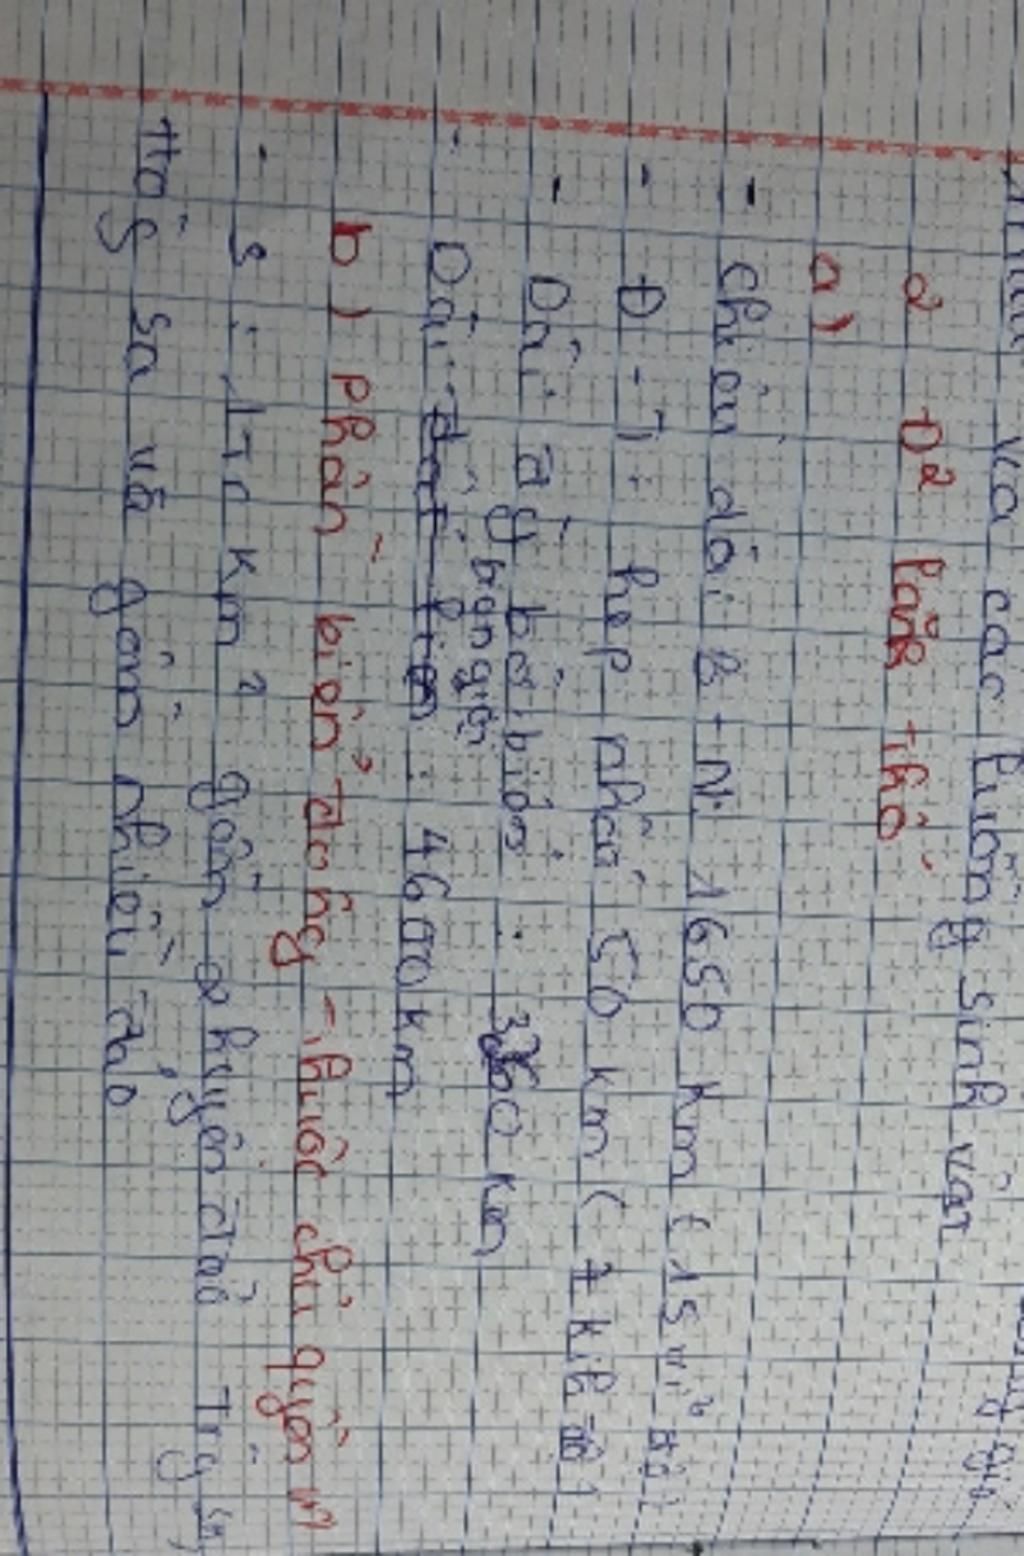 và các luồng sinh vật
2 Đ² lãnh thổ
a)
- Chiều dài B-N: 1650 km (15 vĩ độ)
- Đ-T: hẹp nhất 50 km (1 kinh độ)
- Dài bờ biển: 3260 km
- Dài biên giới: 4600 km
b) phần biển Đông thuộc chủ quyền VN
- S: 1 Tr km² gồm 2 huyện đảo Trg Sa,
Hoàng Sa và gồm nhiều đảo